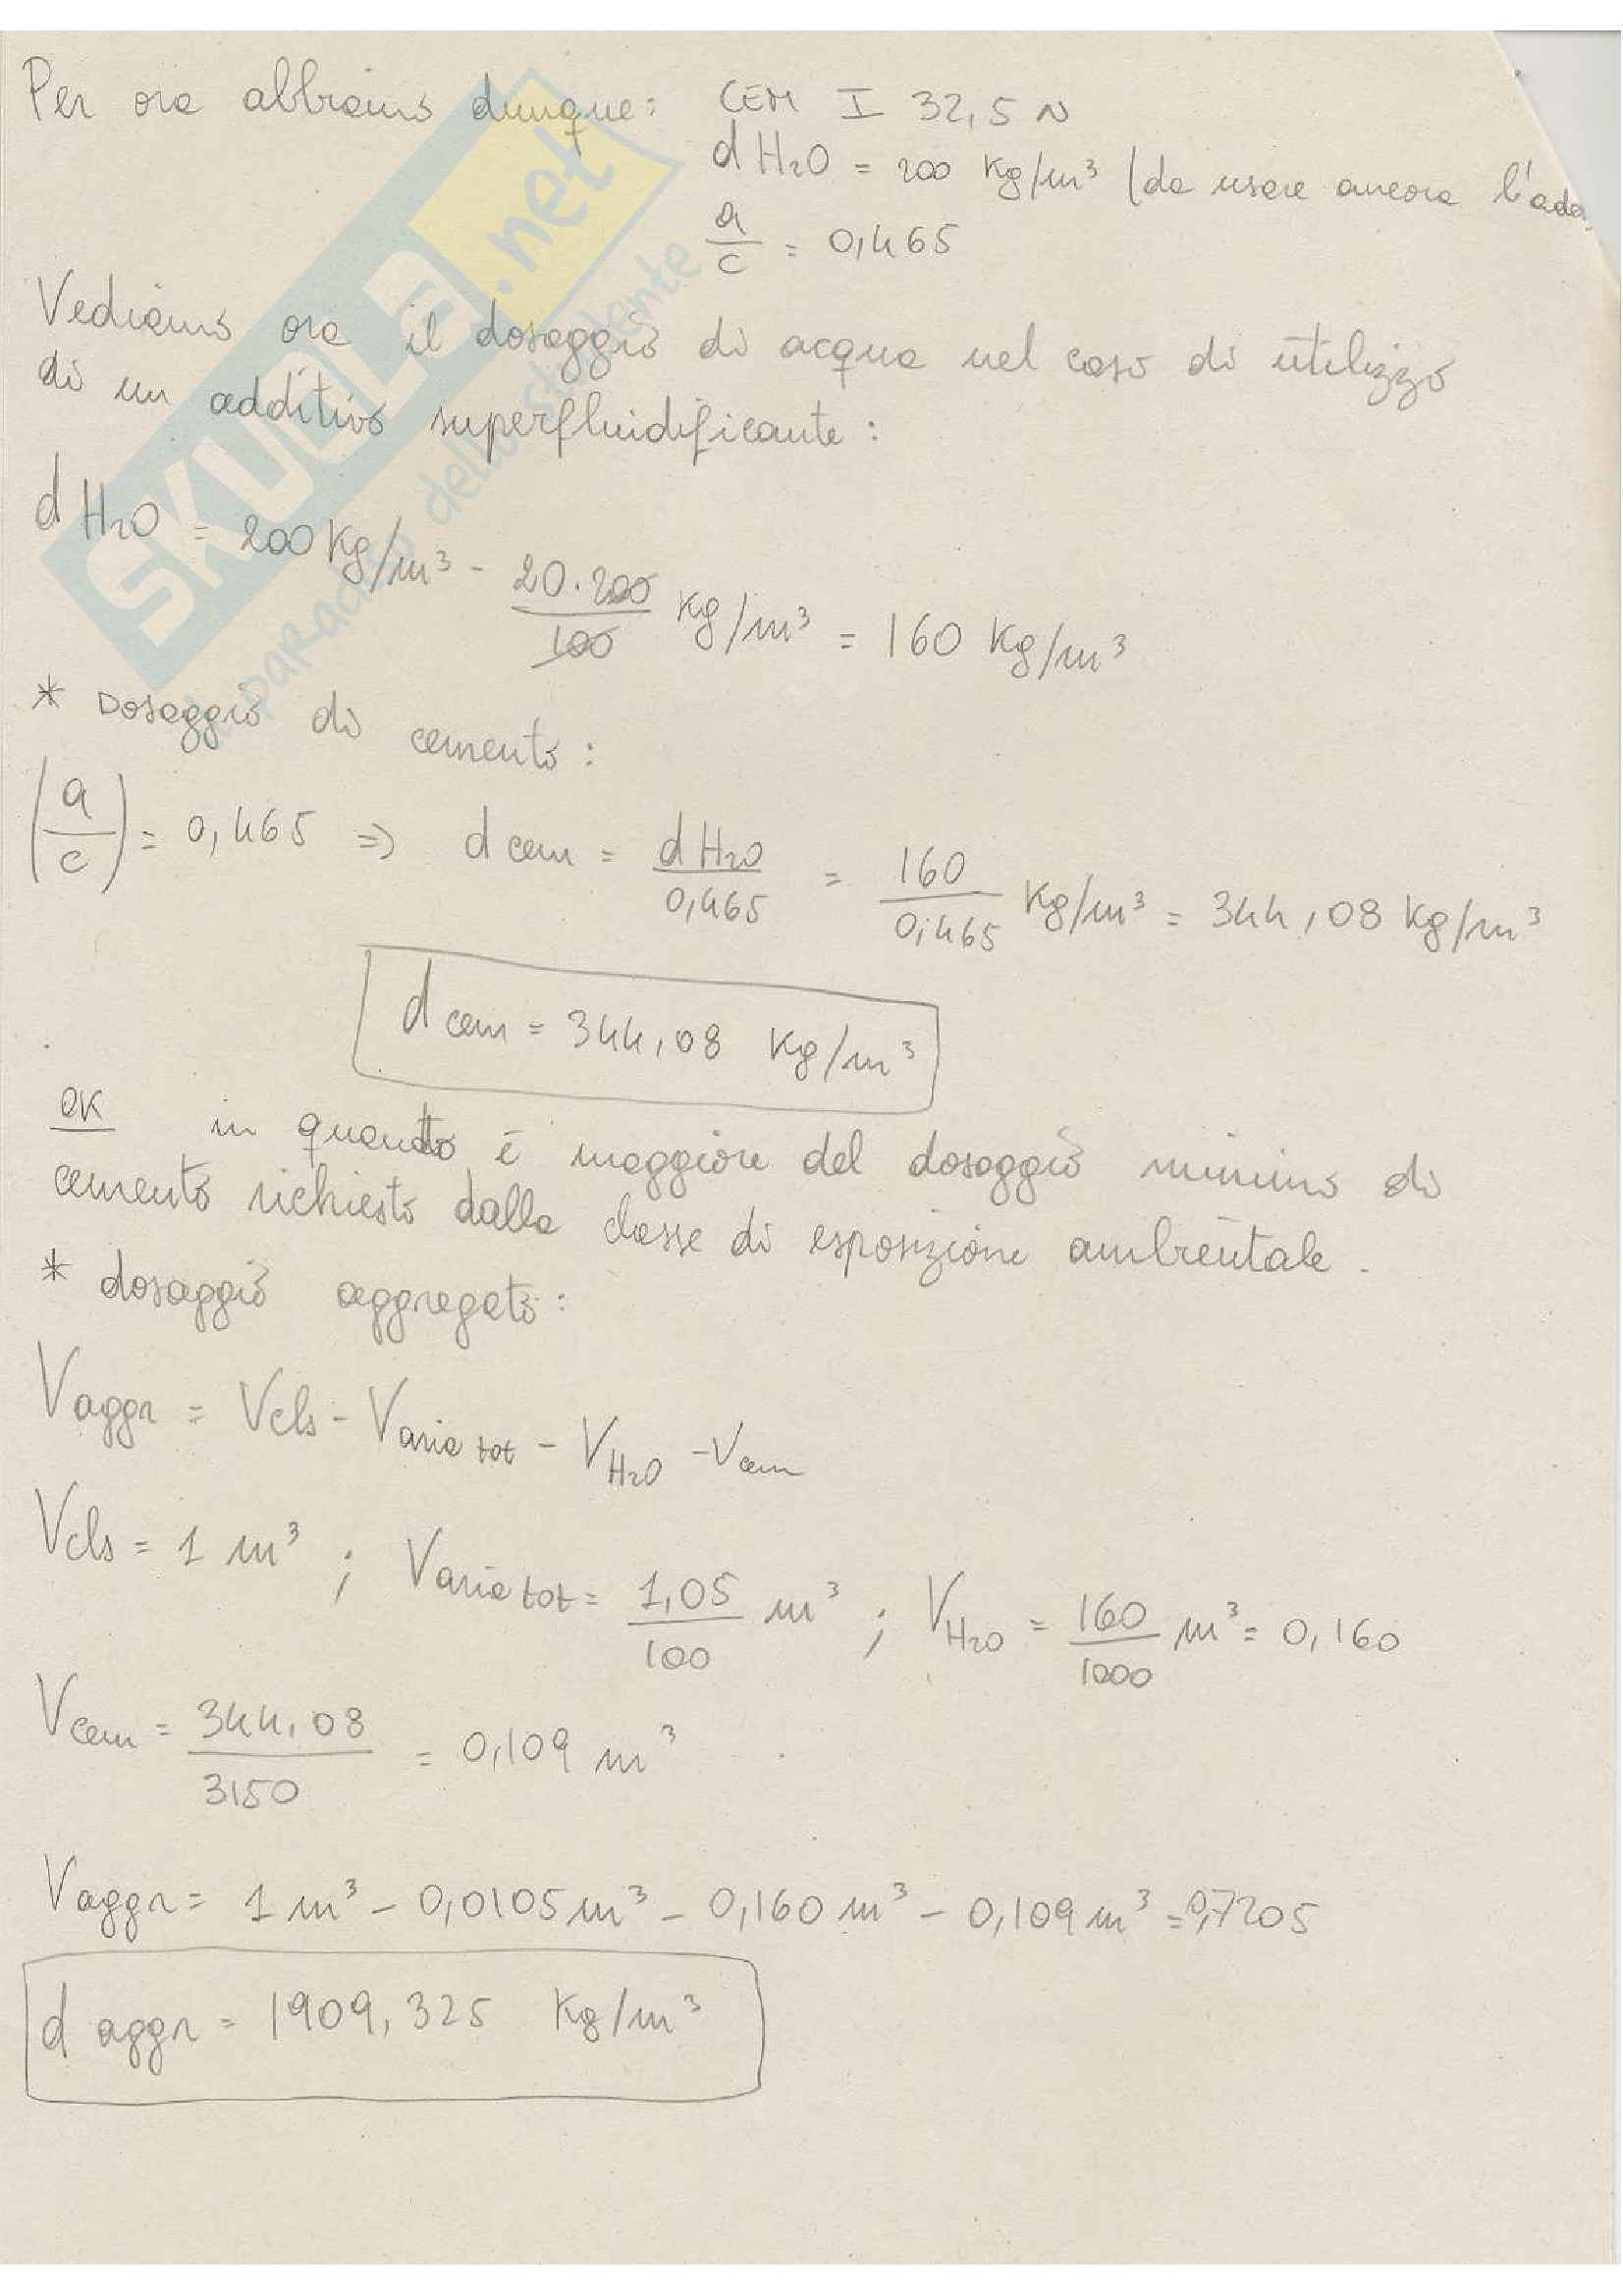 Per ora abbiamo dunque: CEM I 32,5 N
d H2O = 200 Kg/m³ (da usare ancora l'
a/c = 0,465
Vediamo ora il dosaggio di acqua nel caso di utilizzo
di un additivo superfluidificante:
d H2O = 200 Kg/m³ - 20·200/100 Kg/m³ = 160 Kg/m³
* Dosaggio di cemento:
(a/c) = 0,465 => d cem = d H2O/0,465 = 160/0,465 Kg/m³ = 344,08 Kg/m³
d cem = 344,08 Kg/m³
OK in quanto è maggiore del dosaggio minimo di
cemento richiesto dalla classe di esposizione ambientale.
* dosaggio aggregato:
Vaggr = Vcls - Varia tot - VH2O - Vcem
Vcls = 1 m³ ; Varia tot = 1,05/100 m³ ; VH2O = 160/1000 m³ = 0,160
Vcem = 344,08/3150 = 0,109 m³
Vaggr = 1 m³ - 0,0105 m³ - 0,160 m³ - 0,109 m³ = 0,7205
d aggr = 1909,325 Kg/m³
SKUOLA.net
il paradiso dello studente